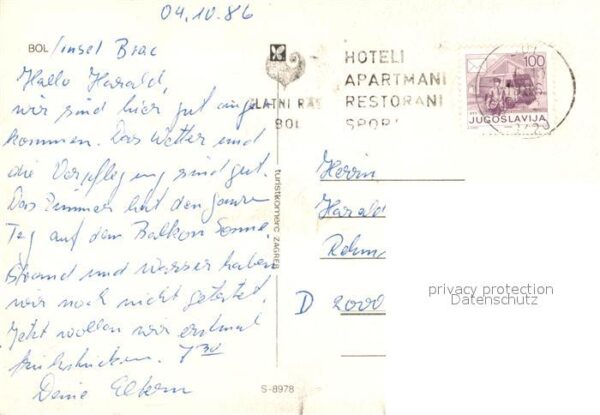 04.10.86
BOL /insel Brac
Hallo Harald,
wir sind hier gut ange-
kommen. Das Wetter und
die Verpflegung sind gut.
Das Zimmer hat den ganzen
Tag auf dem Balkon Sonne.
Strand und Wasser haben
wir noch nicht getestet.
Jetzt wollen wir erstmal
frühstücken. 7 30
Deine Eltern
turistkomerc ZAGREB
S-8978
ZLATNI RAT
BOL
HOTELI
APARTMANI
RESTORANI
SPORT
100
JUGOSLAVIJA
Herrn
Harald
D 2000
privacy protection
Datenschutz